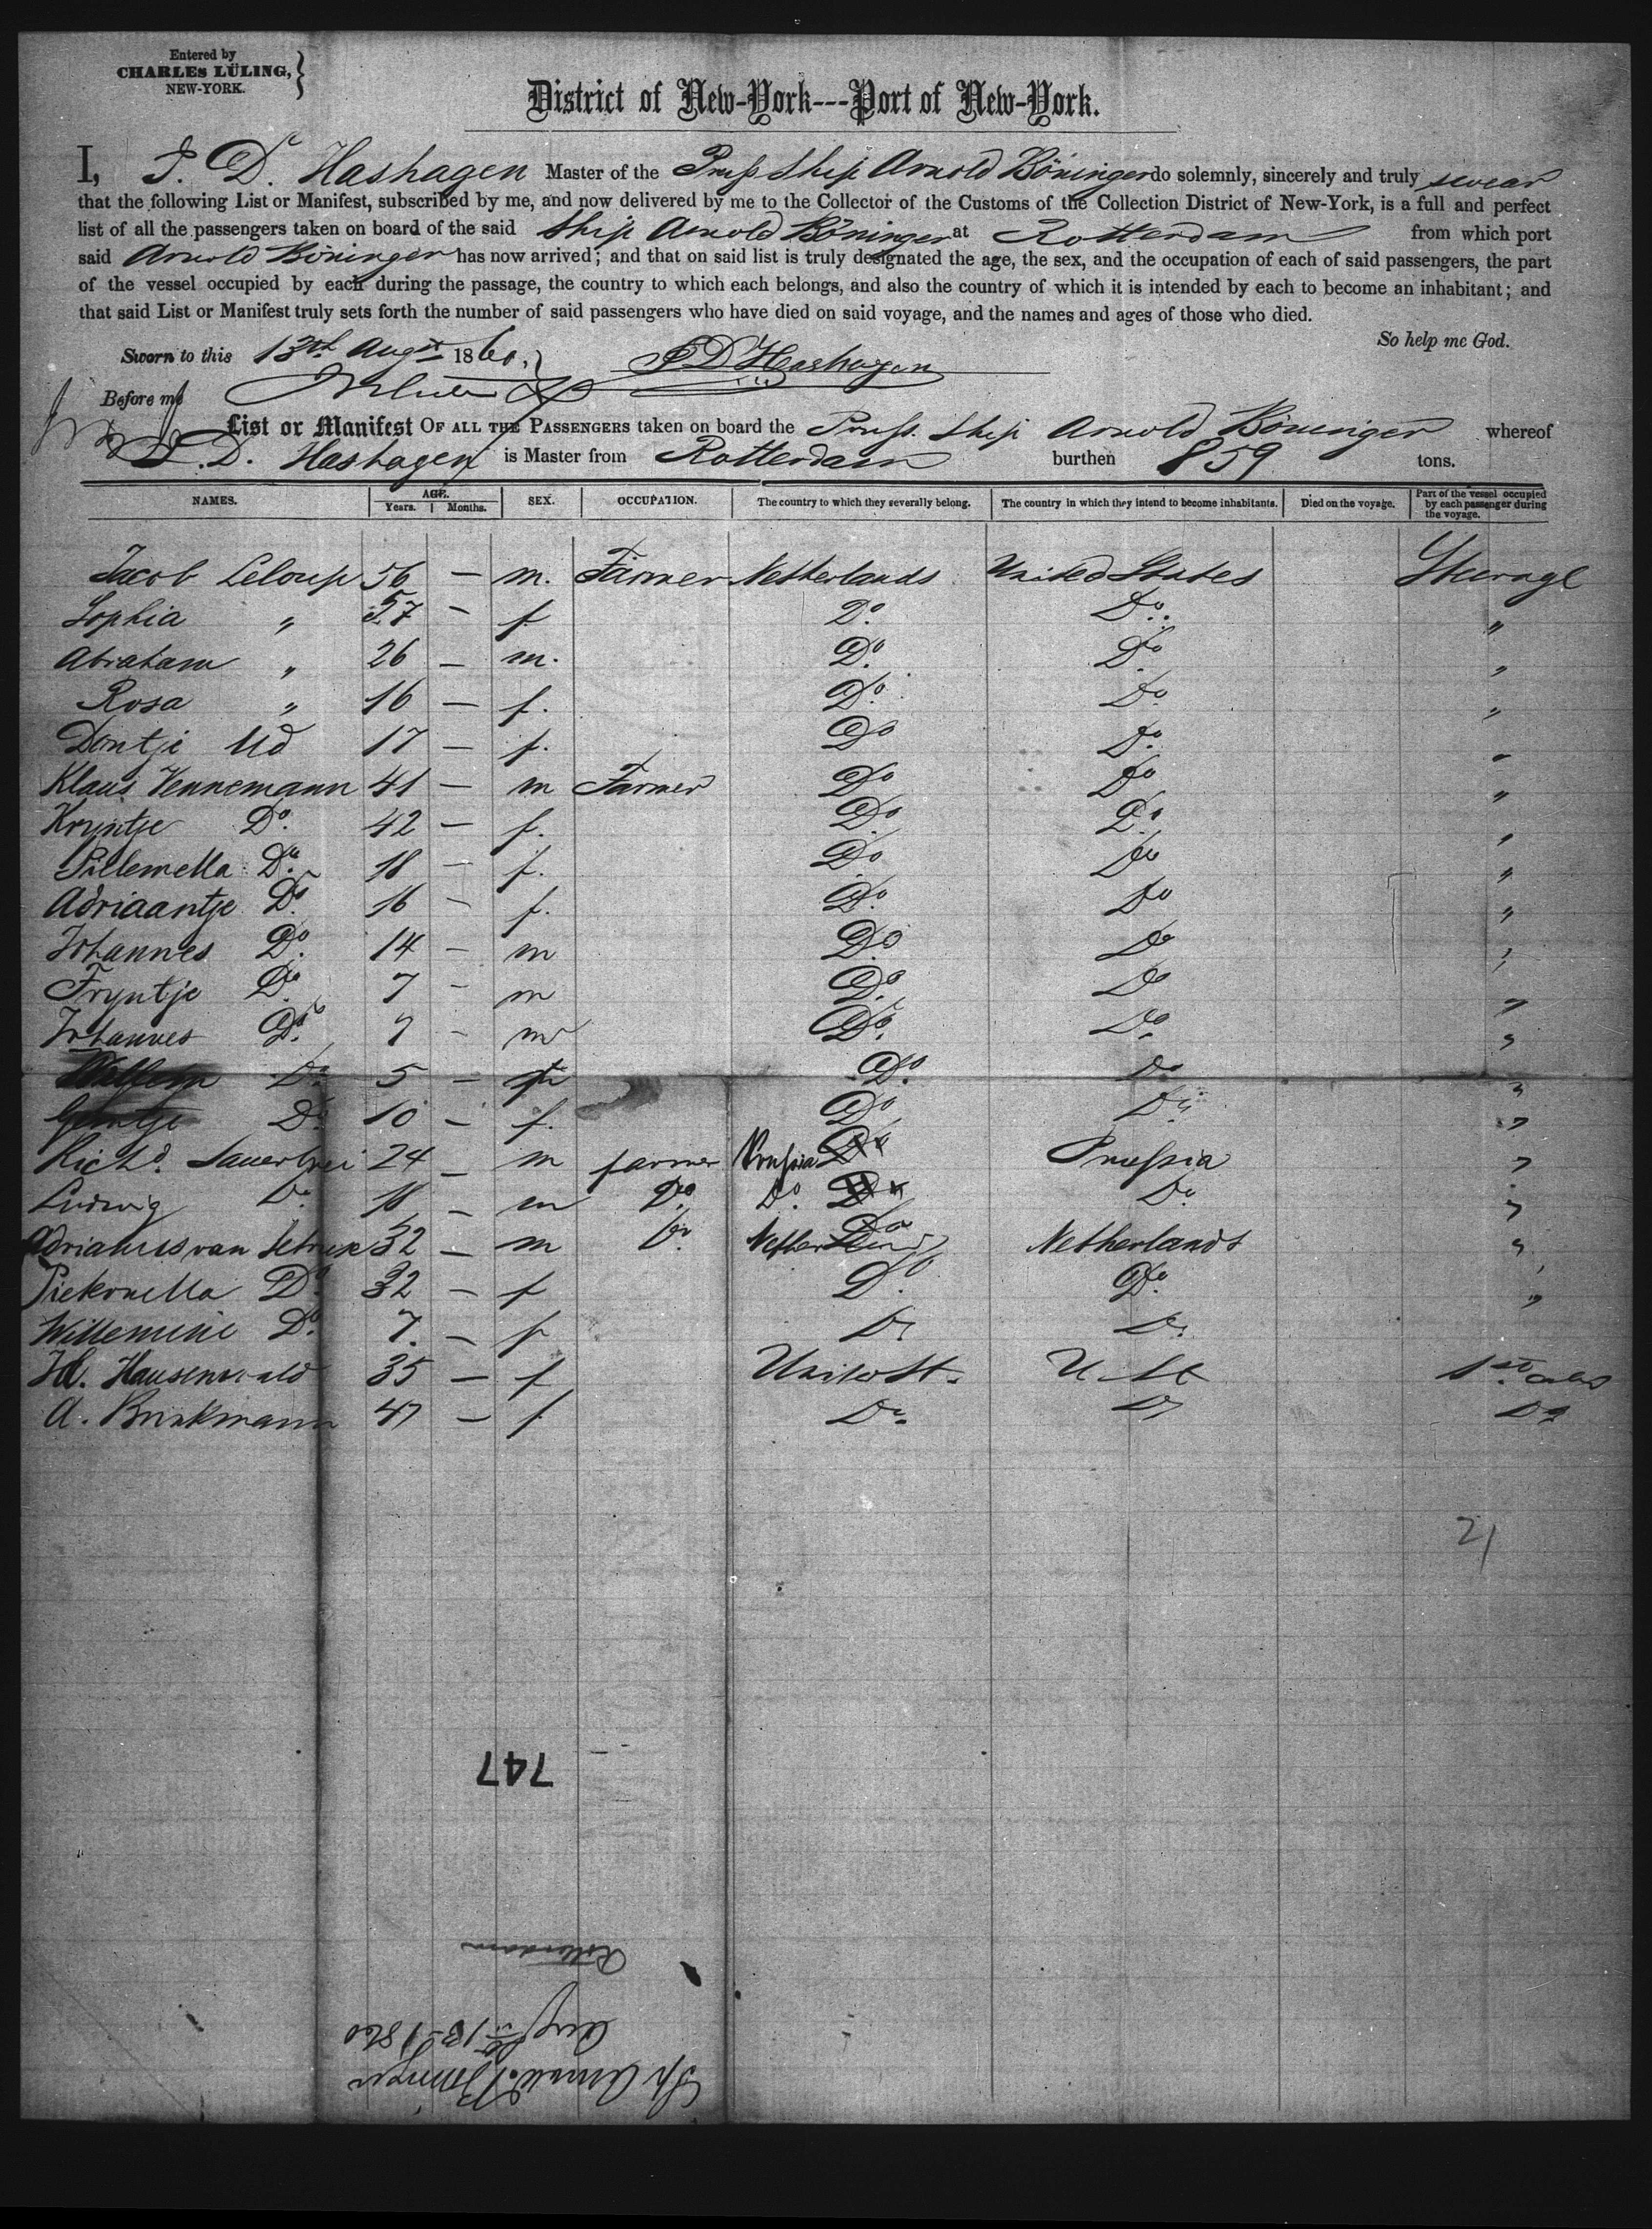 Entered by
CHARLES LÜLING,
NEW-YORK.
District of New-York---Port of New-York.
I, J. D. Hashagen Master of the Pruss Ship Arnold Böninger do solemnly, sincerely and truly swear
that the following List or Manifest, subscribed by me, and now delivered by me to the Collector of the Customs of the Collection District of New-York, is a full and perfect
list of all the passengers taken on board of the said Ship Arnold Böninger at Rotterdam from which port
said Arnold Böninger has now arrived; and that on said list is truly designated the age, the sex, and the occupation of each of said passengers, the part
of the vessel occupied by each during the passage, the country to which each belongs, and also the country of which it is intended by each to become an inhabitant; and
that said List or Manifest truly sets forth the number of said passengers who have died on said voyage, and the names and ages of those who died.
So help me God.
Sworn to this 13th Augst 1860. J D Hashagen
Before me
List or Manifest OF ALL THE PASSENGERS taken on board the Pruss. Ship Arnold Böninger whereof
J. D. Hashagen is Master from Rotterdam burthen 859 tons.
NAMES. AGE. Years. Months. SEX. OCCUPATION. The country to which they severally belong. The country in which they intend to become inhabitants. Died on the voyage. Part of the vessel occupied by each passenger during the voyage.
Jacob Leloup 56 — m. Farmer Netherlands United States Steerage
Sophia " 57 — f. Do. Do. "
Abraham " 26 — m. Do. Do. "
Rosa " 16 — f. Do. Do "
Dontji Ud 17 — f. Do Do. "
Klaus Vennemann 41 — m Farmer Do Do "
Kryntje Do. 42 — f. Do. Do. "
Pillemella Do. 18 — f. Do. Do "
Adriaantje Do. 16 — f. Do. Do "
Johannes Do. 14 — m Do. Do "
Tryntje Do. 7 — m Do. Do "
Johannes Do. 7 — m Do. Do. "
Willem Do. 5 — Do. Do "
Gerritje Do. 10 — f. Do Do "
Richd. Sauerbrei 24 — m farmer Prussia Do Prussia "
Ludwig Do 18 — m Do. Do. Do Do "
Adrianus van 32 — m Do. Netherland Netherlands "
Piekonella Do. 32 — f Do. Do. "
Willemine Do. 7. — f Do Do. "
Hausenwald 35 — f Unit. St. U St 1st cab
A. Brinkmann 47 — f Do. Do Do
21
747
Rotterdam
Aug 13 1860
Sh Arnold Böninger